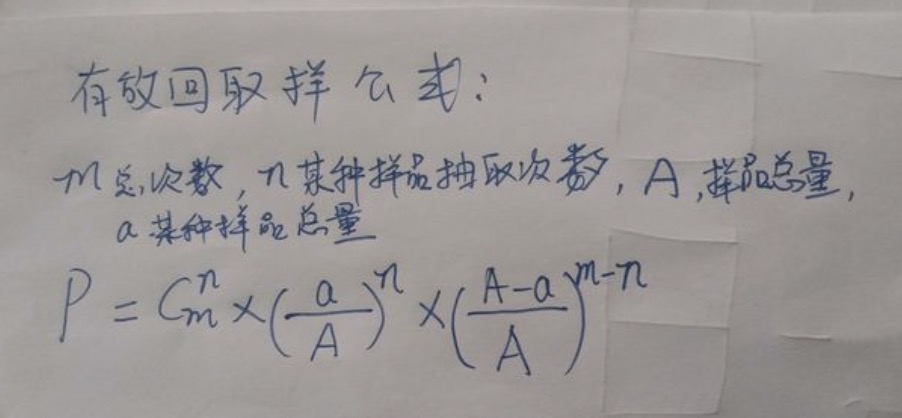 有放回取样公式:
m总次数,n某种样品抽取次数,A,样品总量,
a某种样品总量
P = C_m^n × (a/A)^n × ((A-a)/A)^{m-n}